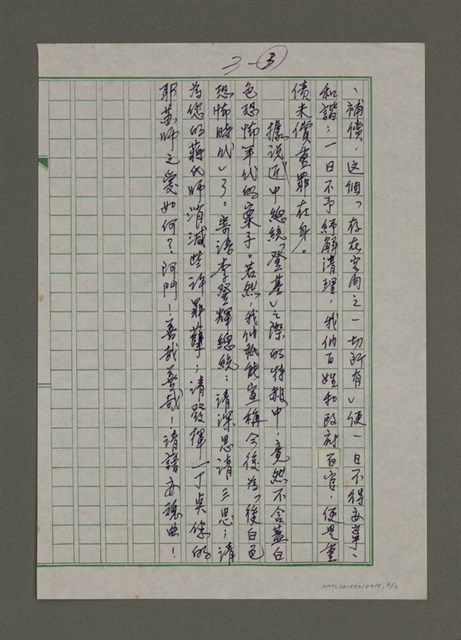 3-③
、補償,這個「存在空間之一切所有」便一日不得安寧、
和諧;一日不予紓解清理,我们百姓和政府百官,便是重
債未償重罪在身。
據說近中總統「登基」之際的特赦中,竟然不含蓋白
色恐怖年代的案子。若然,我们祇能宣稱今後為「後白色
恐怖時代」了。善請李登輝總統:請深思請三思;請
為您的蔣氏師消減些許罪孽;請發揮一丁點您的
耶蘇師之愛如何?阿門!善哉善哉!請譜安魂曲!